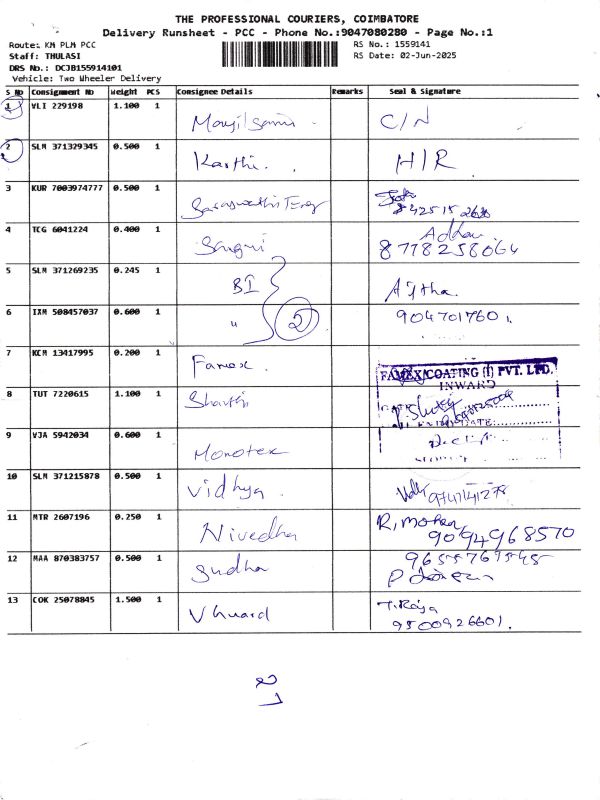 THE PROFESSIONAL COURIERS, COIMBATORE
Delivery Runsheet - PCC - Phone No.:9047080280 - Page No.:1
Route: KM PLM PCC RS No.: 1559141
Staff: THULASI RS Date: 02-Jun-2025
DRS No.: DCJB155914101
Vehicle: Two Wheeler Delivery
S No Consignment No Weight PCS Consignee Details Remarks Seal & Signature
1 VLI 229198 1.100 1 C/N
2 SLM 371329345 0.500 1 Karthi. H/R
3 KUR 7003974777 0.500 1
4 TCG 6041224 0.400 1 8778258064
5 SLM 371269235 0.245 1 BI Ajtha.
6 IXM 508457037 0.600 1 " 2 9047017601.
7 KCM 13417995 0.200 1 Famex. FAMEX COATING (I) PVT. LTD.
INWARD
8 TUT 7220615 1.100 1 Shakthi DATE:
9 VJA 5942034 0.600 1 Monotex
10 SLM 371215878 0.500 1 Vidhya
11 MTR 2607196 0.250 1 Nivedha R, mohan
9094968570
12 MAA 870383757 0.500 1 Sudha
13 COK 25078845 1.500 1 Vhuard T. Raja
9500926601.